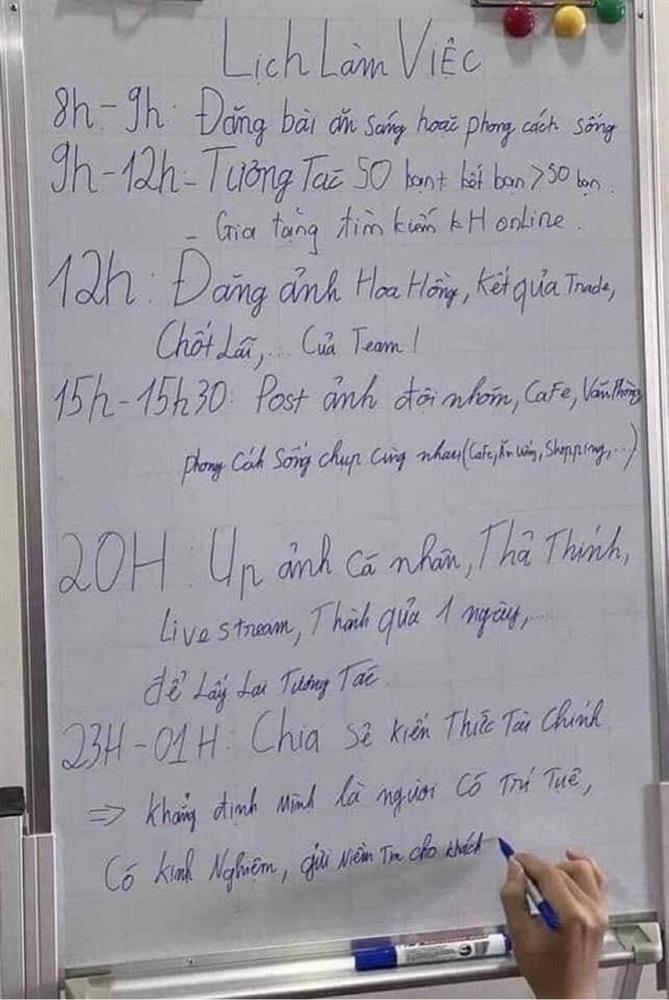 Lịch Làm Việc
8h - 9h: Đăng bài ăn sáng hoặc phong cách sống
9h - 12h - Tương Tác 50 bạn + kết bạn > 50 bạn.
- Gia tăng tìm kiếm KH online.
12h: Đăng ảnh Hoa Hồng, Kết quả Trade,
Chốt Lãi,... Của Team!
15h - 15h30: Post ảnh đội nhóm, Cafe, Văn Phòng
phong Cách Sống chụp cùng nhau (Cafe, Ăn uống, Shopping,...)
20H: Up ảnh cá nhân, Thả Thính,
Livestream, Thành quả 1 ngày,...
để Lấy Lại Tương Tác
23H - 01H: Chia sẻ kiến Thức Tài Chính
=> khẳng định mình là người Có Trí Tuệ,
Có kinh Nghiệm, gửi Niềm Tin cho khách